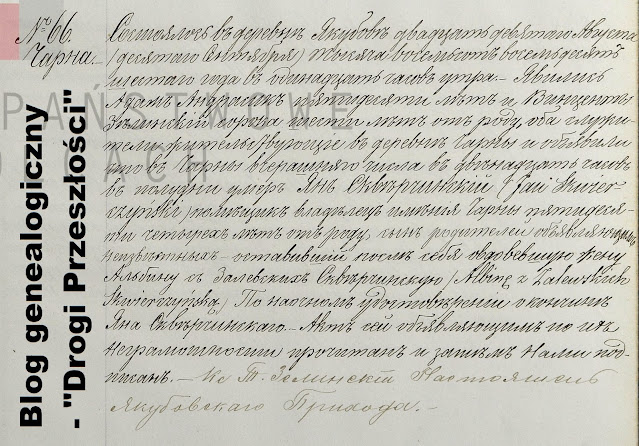 № 66.
Чарна.
Состоялось въ деревнѣ Якубовѣ двадцать девятаго Августа
/десятаго Сентября/ тысяча восемьсотъ восемьдесятъ
шестаго года въ одиннадцать часовъ утра.– Явились
Адамъ пятидесяти лѣтъ и Винценты
Зѣлинскій сорока шести лѣтъ отъ роду, оба служи-
тели жительствующіе въ деревнѣ Чарны и объявили
что въ Чарны вчерашняго числа въ двѣнадцать часовъ
въ полудни умеръ Янъ Сквѣрчинскій /Jan Skwier-
czyński/ помѣщикъ владѣлецъ имѣнія Чарны пятидеся-
ти четырехъ лѣтъ отъ роду, сынъ родителей объявляющимъ
неизвѣстныхъ – оставивший послѣ себя овдовевшую жену
Альбину съ Залевскихъ Сквѣрчинскую /Albinę z Zalewskich
Skwierczyńską/ По наочномъ удостовѣреніи о кончинѣ
Яна Сквѣрчинскаго.– Актъ сей объявляющимъ по ихъ
неграмотности прочитанъ и затѣмъ Нами под-
писанъ.– Кс Т. Зелинскій Настоятель
Якубовскаго Прихода.–
PAŃSTWOWE
Blog genealogiczny
- "Drogi Przeszłości"